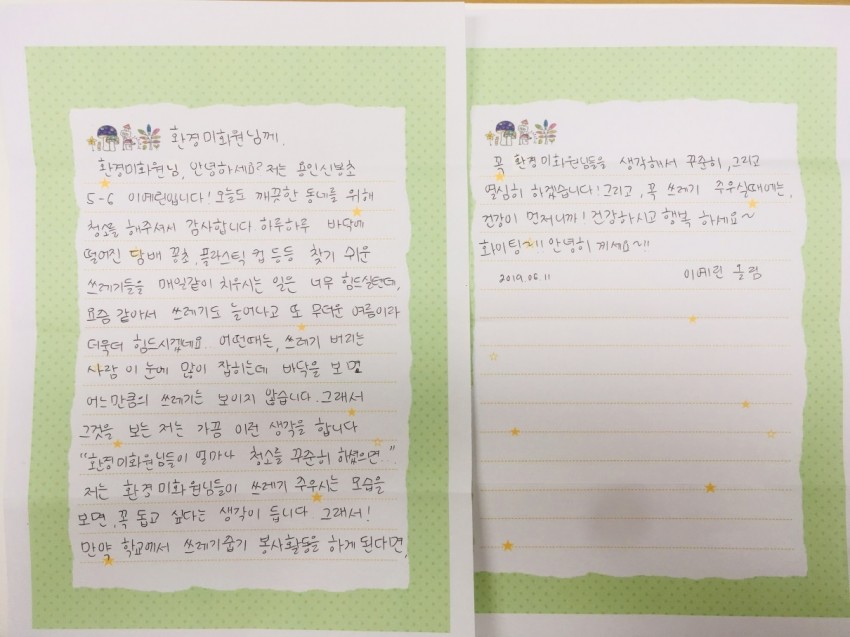 환경미화원님께.
환경미화원님, 안녕하세요? 저는 용인신봉초
5-6 이예린입니다! 오늘도 깨끗한 동네를 위해
청소를 해주셔서 감사합니다 하루하루 바닥에
떨어진 담배 꽁초, 플라스틱 컵 등등 찾기 쉬운
쓰레기들을 매일같이 치우시는 일은 너무 힘드실텐데,
요즘 같아서 쓰레기도 늘어나고 또 무더운 여름이라
더욱더 힘드시겠네요. 어떤때는, 쓰레기 버리는
사람 이 눈에 많이 잡히는데 바닥을 보면
어느만큼의 쓰레기는 보이지 않습니다. 그래서
그것을 보는 저는 가끔 이런 생각을 합니다
"환경미화원님들이 얼마나 청소를 꾸준히 하셨으면".
저는 환경미화원님들이 쓰레기 주우시는 모습을
보면, 꼭 돕고 싶다는 생각이 듭니다. 그래서!
만약 학교에서 쓰레기줍기 봉사활동을 하게 된다면,
꼭 환경미화원님들을 생각해서 꾸준히, 그리고
열심히 하겠습니다! 그리고, 꼭 쓰레기 주우실때에는,
건강이 먼저니까! 건강하시고 행복 하세요~
화이팅~!! 안녕히 계세요~!!
2019.06.11 이예린 올림